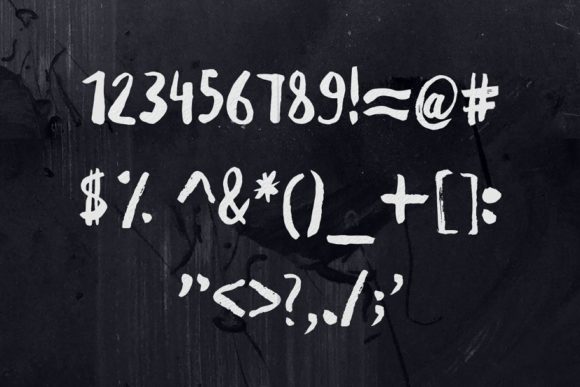 123456789!≈@#
$% ^&*()_+[]:
"<>?,./;'